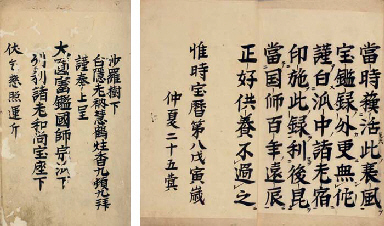 當時機活此裏風
宝鑑録外更無佗
謹白派中諸老宿
印施此録利後昆
當国師百年遠辰
正好供養不過之
惟時宝暦第八戊寅歳
仲夏二十五蓂
沙羅樹下
白隠老衲慧鶴炷香九頓九拜
謹奉上呈
大圓宝鑑國師
列刹諸老和尚宝座下
伏乞慈照運斤